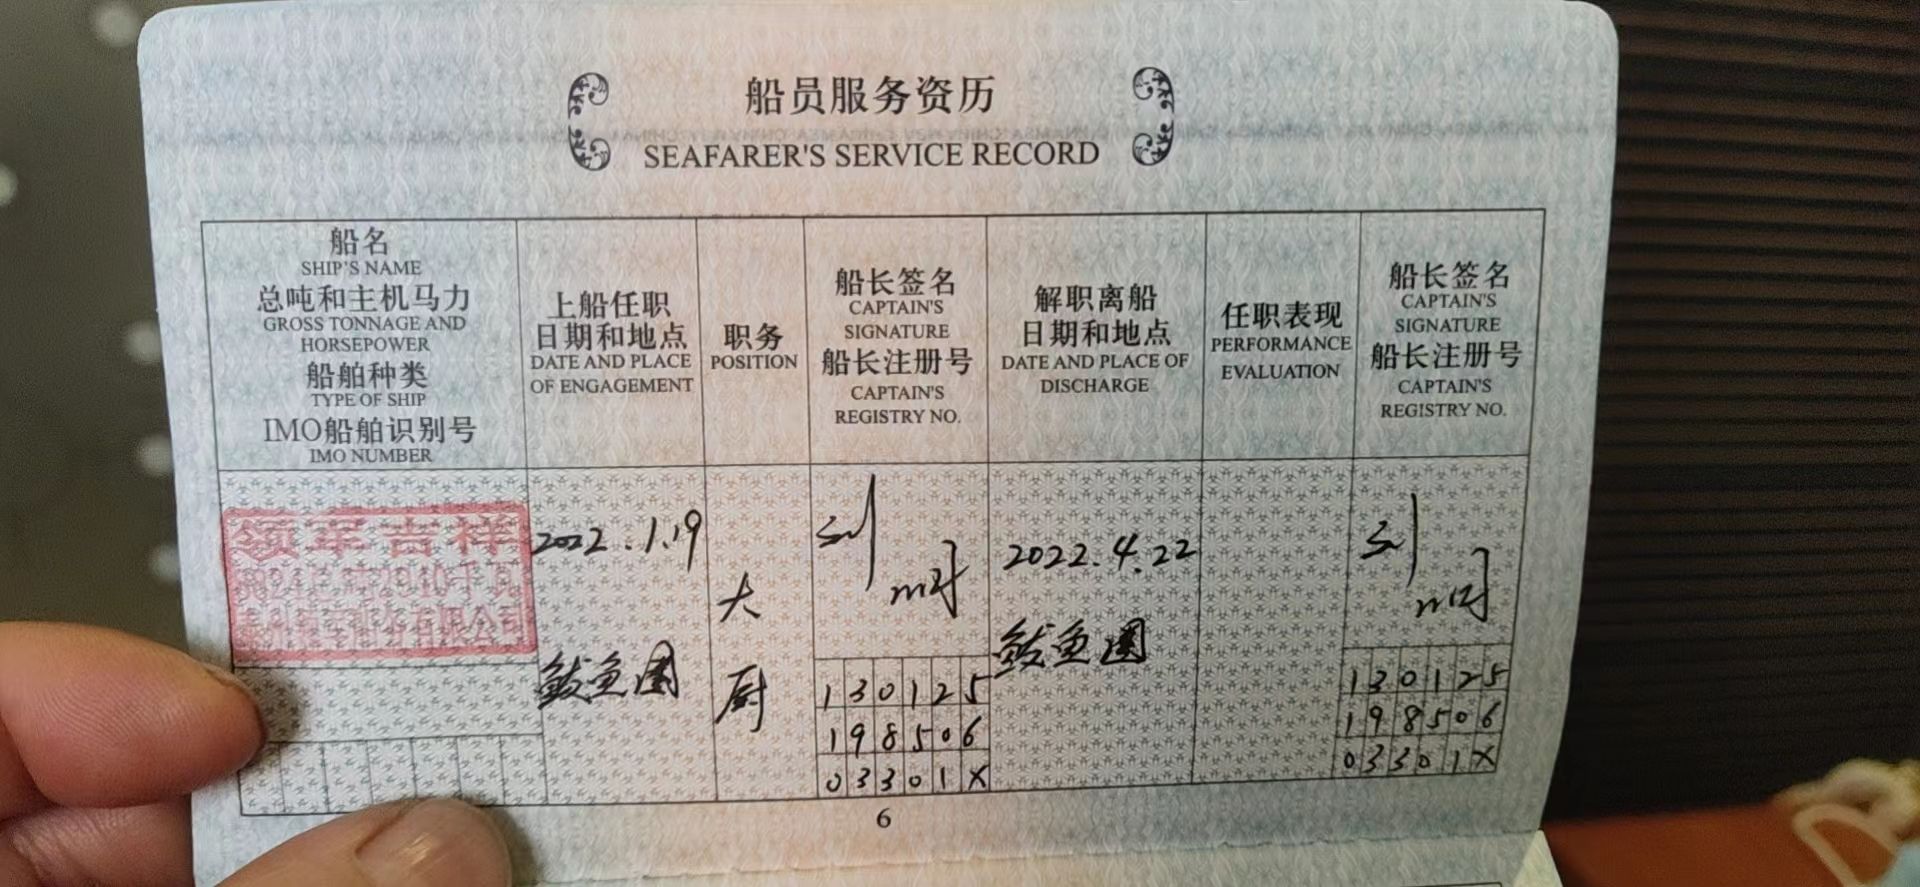 船员服务资历
SEAFARER'S SERVICE RECORD
船名
SHIP'S NAME
总吨和主机马力
GROSS TONNAGE AND
HORSEPOWER
船舶种类
TYPE OF SHIP
IMO船舶识别号
IMO NUMBER
上船任职
日期和地点
DATE AND PLACE
OF ENGAGEMENT
职务
POSITION
船长签名
CAPTAIN'S
SIGNATURE
船长注册号
CAPTAIN'S
REGISTRY NO.
解职离船
日期和地点
DATE AND PLACE OF
DISCHARGE
任职表现
PERFORMANCE
EVALUATION
船长签名
CAPTAIN'S
SIGNATURE
船长注册号
CAPTAIN'S
REGISTRY NO.
领军吉祥
2022.1.19
鲅鱼圈
大
厨
130125
198506
03301X
2022.4.22
鲅鱼圈
130125
198506
03301X
6